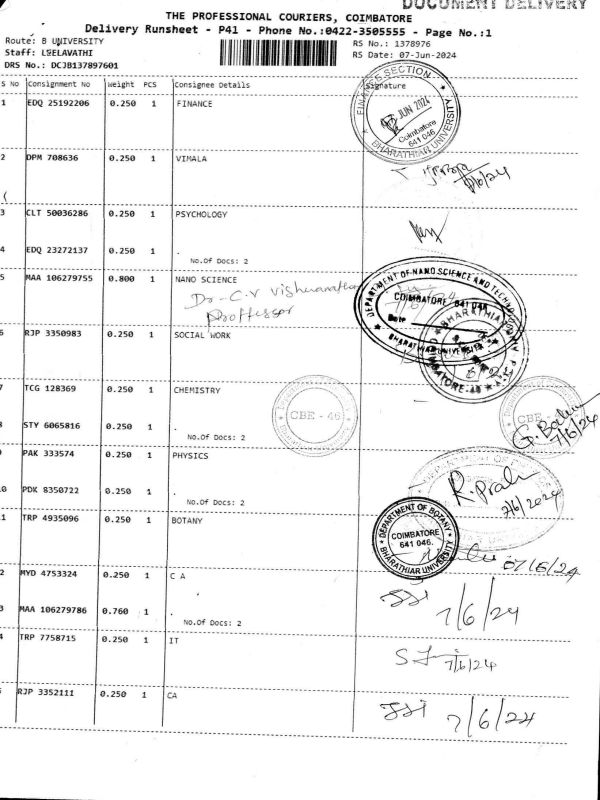 DOCUMENT DELIVERY
THE PROFESSIONAL COURIERS, COIMBATORE
Delivery Runsheet - P41 - Phone No.:0422-3505555 - Page No.:1
Route: B UNIVERSITY
RS No.: 1378976
Staff: LEELAVATHI
RS Date: 07-Jun-2024
DRS No.: DCJB137897601
S No Consignment No Weight PCS Consignee Details Signature
1 EDQ 25192206 0.250 1 FINANCE
FINANCE SECTION
JUN 2024
Coimbatore
641 046
BHARATHIAR UNIVERSITY
2 DPM 708636 0.250 1 VIMALA
7/6/24
3 CLT 50036286 0.250 1 PSYCHOLOGY
4 EDQ 23272137 0.250 1 .
No.Of Docs: 2
5 MAA 106279755 0.800 1 NANO SCIENCE
Dr. C.V
Proffessor
DEPARTMENT OF NANO SCIENCE AND
COIMBATORE 641 046
Date
BHARATHIAR UNIVERSITY
6 RJP 3350983 0.250 1 SOCIAL WORK
BHARATHIAR
COIMBATORE
7 TCG 128369 0.250 1 CHEMISTRY
CBE - 46
CBE -
8 STY 6065816 0.250 1 .
No.Of Docs: 2
G. Babu
7/6/24
9 PAK 333574 0.250 1 PHYSICS
10 PDK 8350722 0.250 1 .
No.Of Docs: 2
7/6/2024
11 TRP 4935096 0.250 1 BOTANY
DEPARTMENT OF BOTANY
COIMBATORE
641 046.
BHARATHIAR UNIVERSITY
07/6/24
2 MYD 4753324 0.250 1 C A
7/6/24
3 MAA 106279786 0.760 1 .
No.Of Docs: 2
4 TRP 7758715 0.250 1 IT
7/6/24
5 RJP 3352111 0.250 1 CA
7/6/24